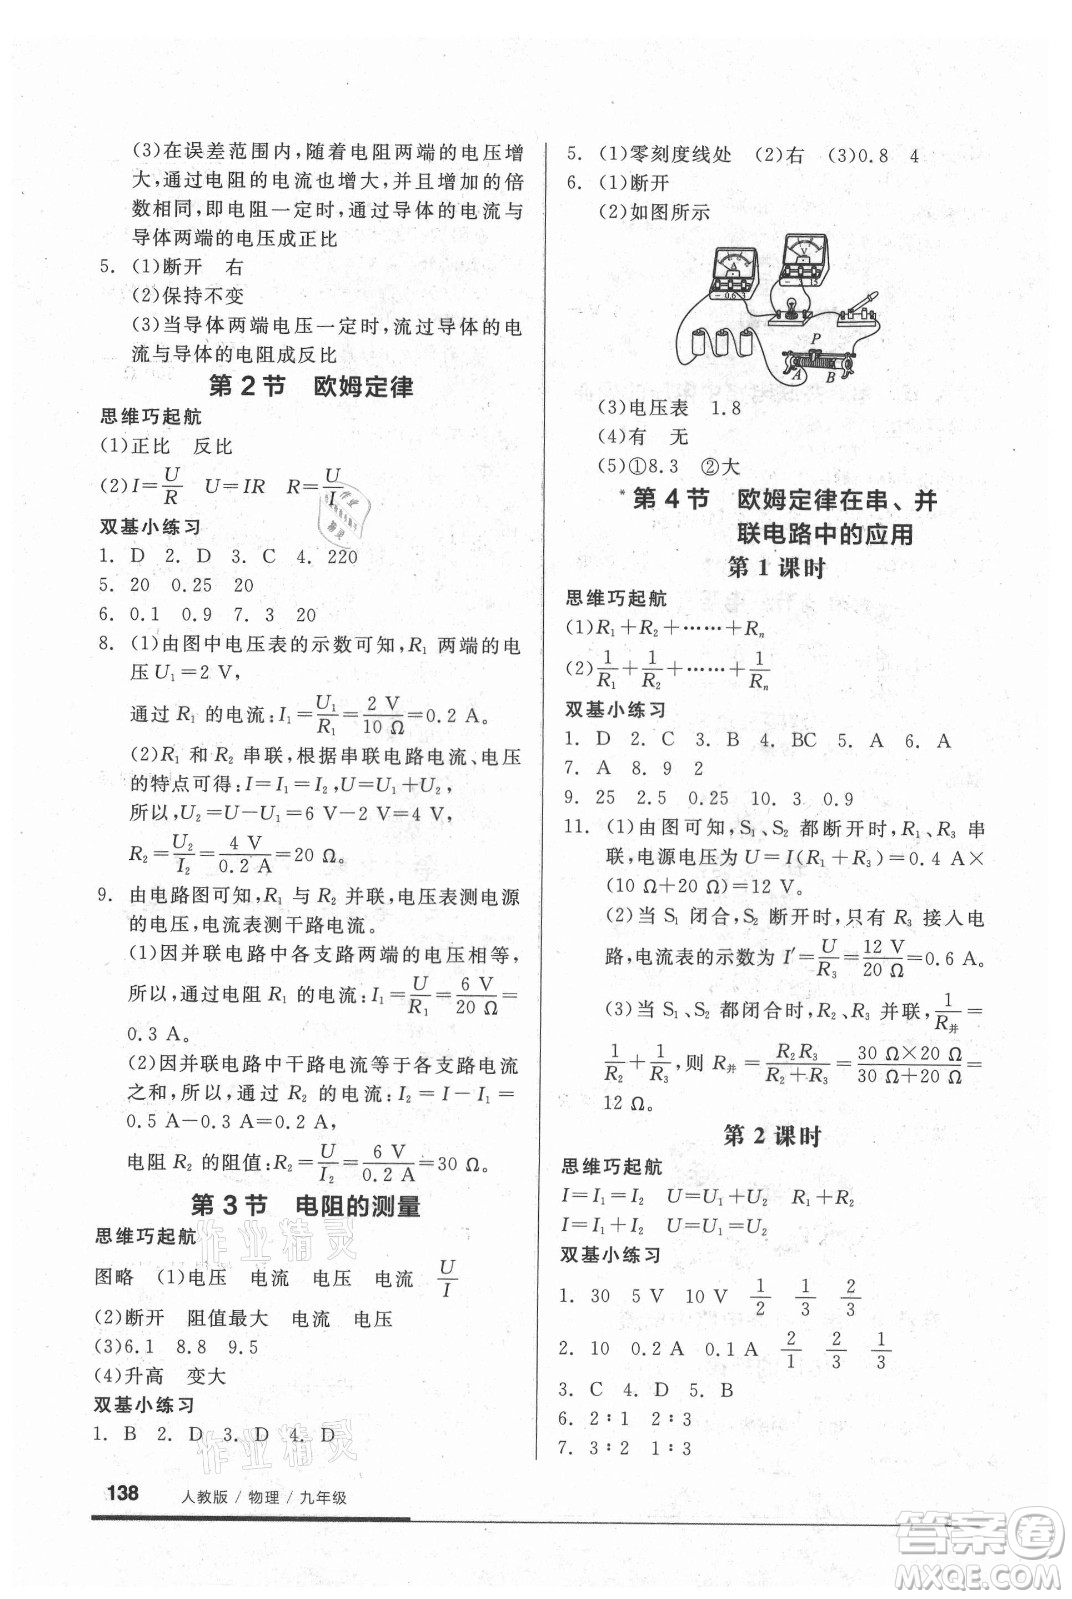 (3)在误差范围内,随着电阻两端的电压增
大,通过电阻的电流也增大,并且增大的倍
数相同,即电阻一定时,通过导体的电流与
导体两端的电压成正比
5. (1)断开 右
(2)保持不变
(3)当导体两端电压一定时,流过导体的电
流与导体的电阻成反比
第2节 欧姆定律
思维巧起航
(1)正比 反比
(2)I=U/R U=IR R=U/I
双基小练习
1. D 2. D 3. C 4. 220
5. 20 0.25 20
6. 0.1 0.9 7. 3 20
8. (1)由图中电压表的示数可知,R₁ 两端的电
压U₁=2 V,
通过 R₁ 的电流:I₁=U₁/R₁=2 V/10 Ω=0.2 A。
(2)R₁ 和 R₂ 串联,根据串联电路电流、电压
的特点可得:I=I₁=I₂,U=U₁+U₂,
所以,U₂=U-U₁=6 V-2 V=4 V,
R₂=U₂/I₂=4 V/0.2 A=20 Ω。
9. 由电路图可知,R₁ 与 R₂ 并联,电压表测电源
的电压,电流表测干路电流。
(1)因并联电路中各支路两端的电压相等,
所以,通过电阻 R₁ 的电流:I₁=U/R₁=6 V/20 Ω=
0.3 A。
(2)因并联电路中干路电流等于各支路电流
之和,所以,通过 R₂ 的电流:I₂=I-I₁=
0.5 A-0.3 A=0.2 A,
电阻 R₂ 的阻值:R₂=U/I₂=6 V/0.2 A=30 Ω。
第3节 电阻的测量
思维巧起航
图略 (1)电压 电流 电压 电流 U/I
(2)断开 阻值最大 电流 电压
(3)6.1 8.8 9.5
(4)升高 变大
双基小练习
1. B 2. D 3. D 4. D
5. (1)零刻度线处 (2)右 (3)0.8 4
6. (1)断开
(2)如图所示
A
V
- 0.6 3
P
A B
(3)电压表 1.8
(4)有 无
(5)①8.3 ②大
*第4节 欧姆定律在串、并
联电路中的应用
第1课时
思维巧起航
(1)R₁+R₂+……+Rₙ
(2)1/R₁+1/R₂+……+1/Rₙ
双基小练习
1. D 2. C 3. B 4. BC 5. A 6. A
7. A 8. 9 2
9. 25 2.5 0.25 10. 3 0.9
11. (1)由图可知,S₁、S₂ 都断开时,R₁、R₃ 串
联,电源电压为 U=I(R₁+R₃)=0.4 A×
(10 Ω+20 Ω)=12 V。
(2)当 S₁ 闭合,S₂ 断开时,只有 R₃ 接入电
路,电流表的示数为 I′=U/R₃=12 V/20 Ω=0.6 A。
(3)当 S₁、S₂ 都闭合时,R₂、R₃ 并联,1/R并=
1/R₂+1/R₃,则 R并=R₂R₃/(R₂+R₃)=(30 Ω×20 Ω)/(30 Ω+20 Ω)=
12 Ω。
第2课时
思维巧起航
I=I₁=I₂ U=U₁+U₂ R=R₁+R₂
I=I₁+I₂ U=U₁=U₂
双基小练习
1. 30 5 V 10 V 1/2 1/3 2/3
2. 10 0.2 A 0.1 A 2/1 2/3 1/3
3. C 4. D 5. B
6. 2∶1 2∶3
7. 3∶2 1∶3
138 人教版 / 物理 / 九年级
作业精灵
作业精灵
答案卷
MXQE.COM